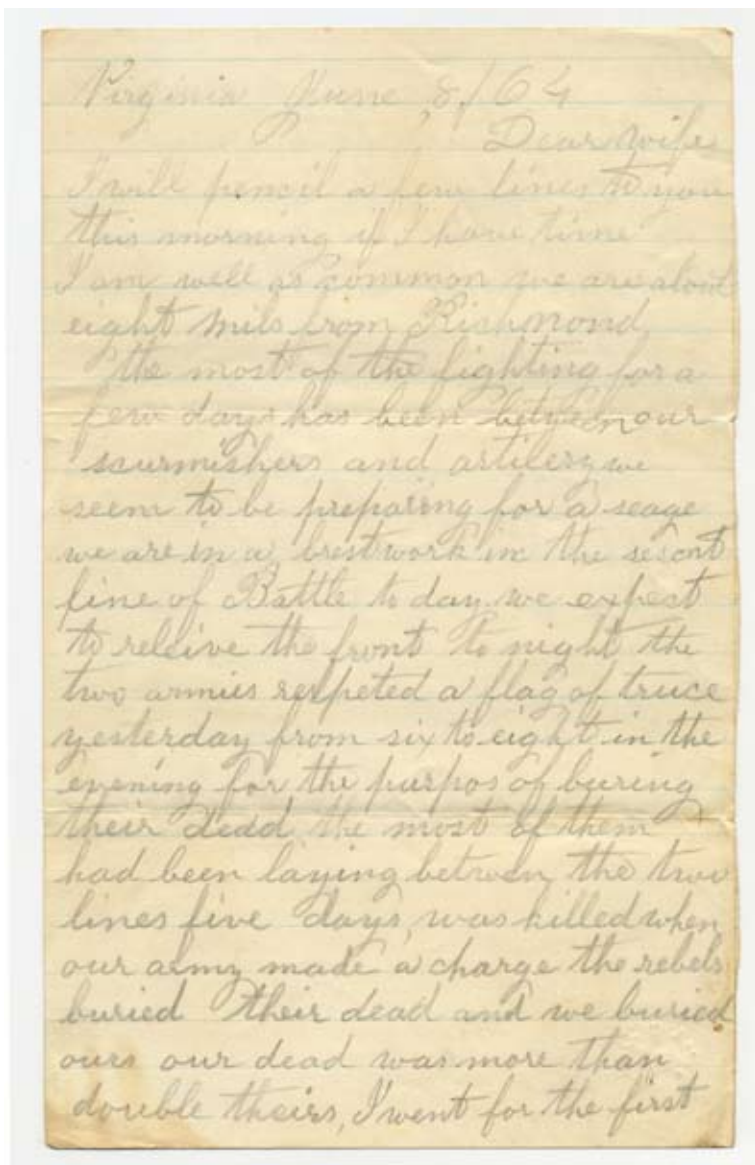 Virginia June, 8/64
Dear wife
I will pencil a few lines to you
this morning if I have time
I am well as common we are about
eight mils from Richmond
the most of the fighting for a
few days has been between our
scurmishers and artilery we
seem to be preparing for a seage
we are in a brestwork in the secont
line of Battle to day. we expect
to releive the front to night the
two armies respeted a flag of truce
yesterday from six to eight in the
evening for the purpos of buring
their dead, the most of them
had been laying between the two
lines five days, was killed when
our army made a charge the rebels
buried their dead and we buried
ours our dead was more than
double theirs, I went for the first